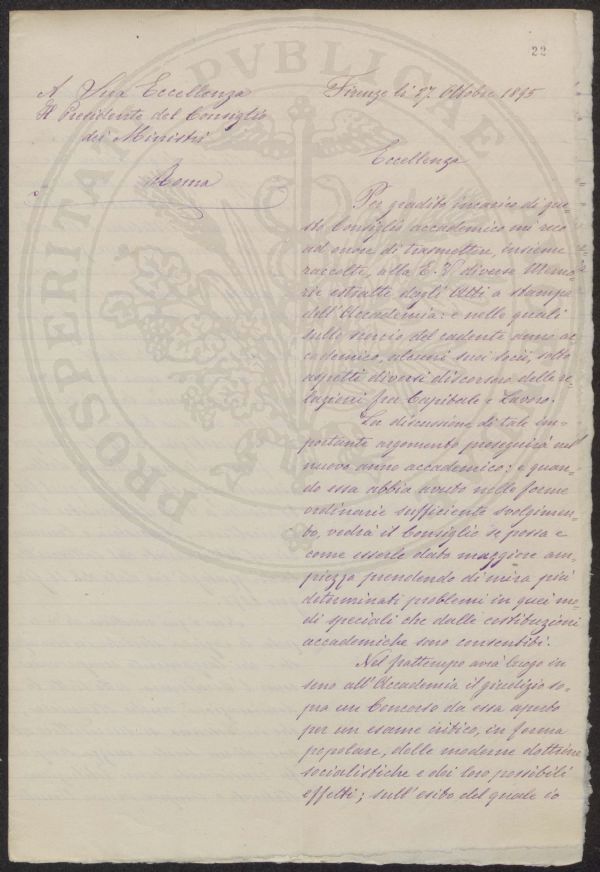 22
A Sua Eccellenza
Il Presidente del Consiglio
dei Ministri
Roma
Firenze li 27. Ottobre 1895
Eccellenza
Per gradito incarico di que-
sto Consiglio accademico mi reco
ad onore di trasmettere, insieme
raccolte, alla E. V. diverse Memo-
rie estratte dagli Atti a stampa
dell'Accademia: e nelle quali
sullo scorcio del cadente anno ac-
cademico, alcuni suoi socii, sotto
aspetti diversi discorsero delle re-
lazioni fra Capitale e Lavoro.
La discussione di tale im-
portante argomento proseguirà nel
nuovo anno accademico: e quan-
do essa abbia avuto nelle forme
ordinarie sufficiente svolgimen-
to, vedrà il Consiglio se possa e
come esserle dato maggiore am-
piezza prendendo di mira più
determinati problemi in quei mo-
di speciali che dalle costituzioni
accademiche sono consentibi.
Nel frattempo avrà luogo in
seno all'Accademia il giudizio so-
pra un Concorso da essa aperto
per un esame critico, in forma
popolare, delle moderne dottrine
socialistiche e dei loro possibili
effetti; sull'esito del quale io
PROSPERITATI PVBLICAE